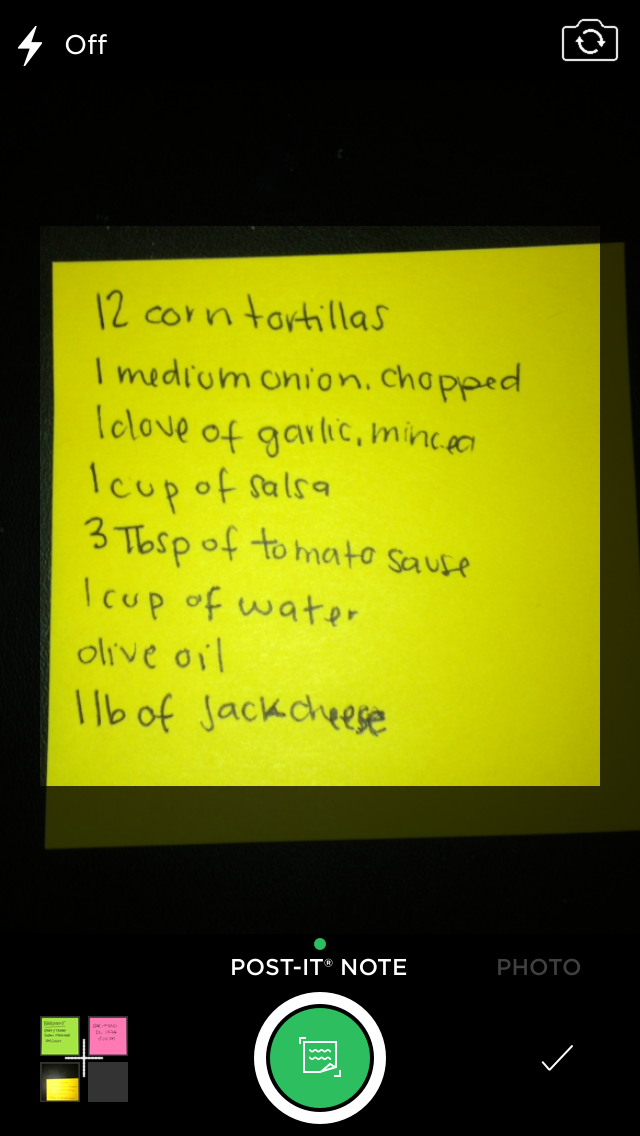 Off
12 corn tortillas
1 medium onion. chopped
1 clove of garlic, minced
1 cup of salsa
3 Tbsp of tomato sause
1 cup of water
olive oil
1 lb of Jack cheese
POST-IT® NOTE
PHOTO